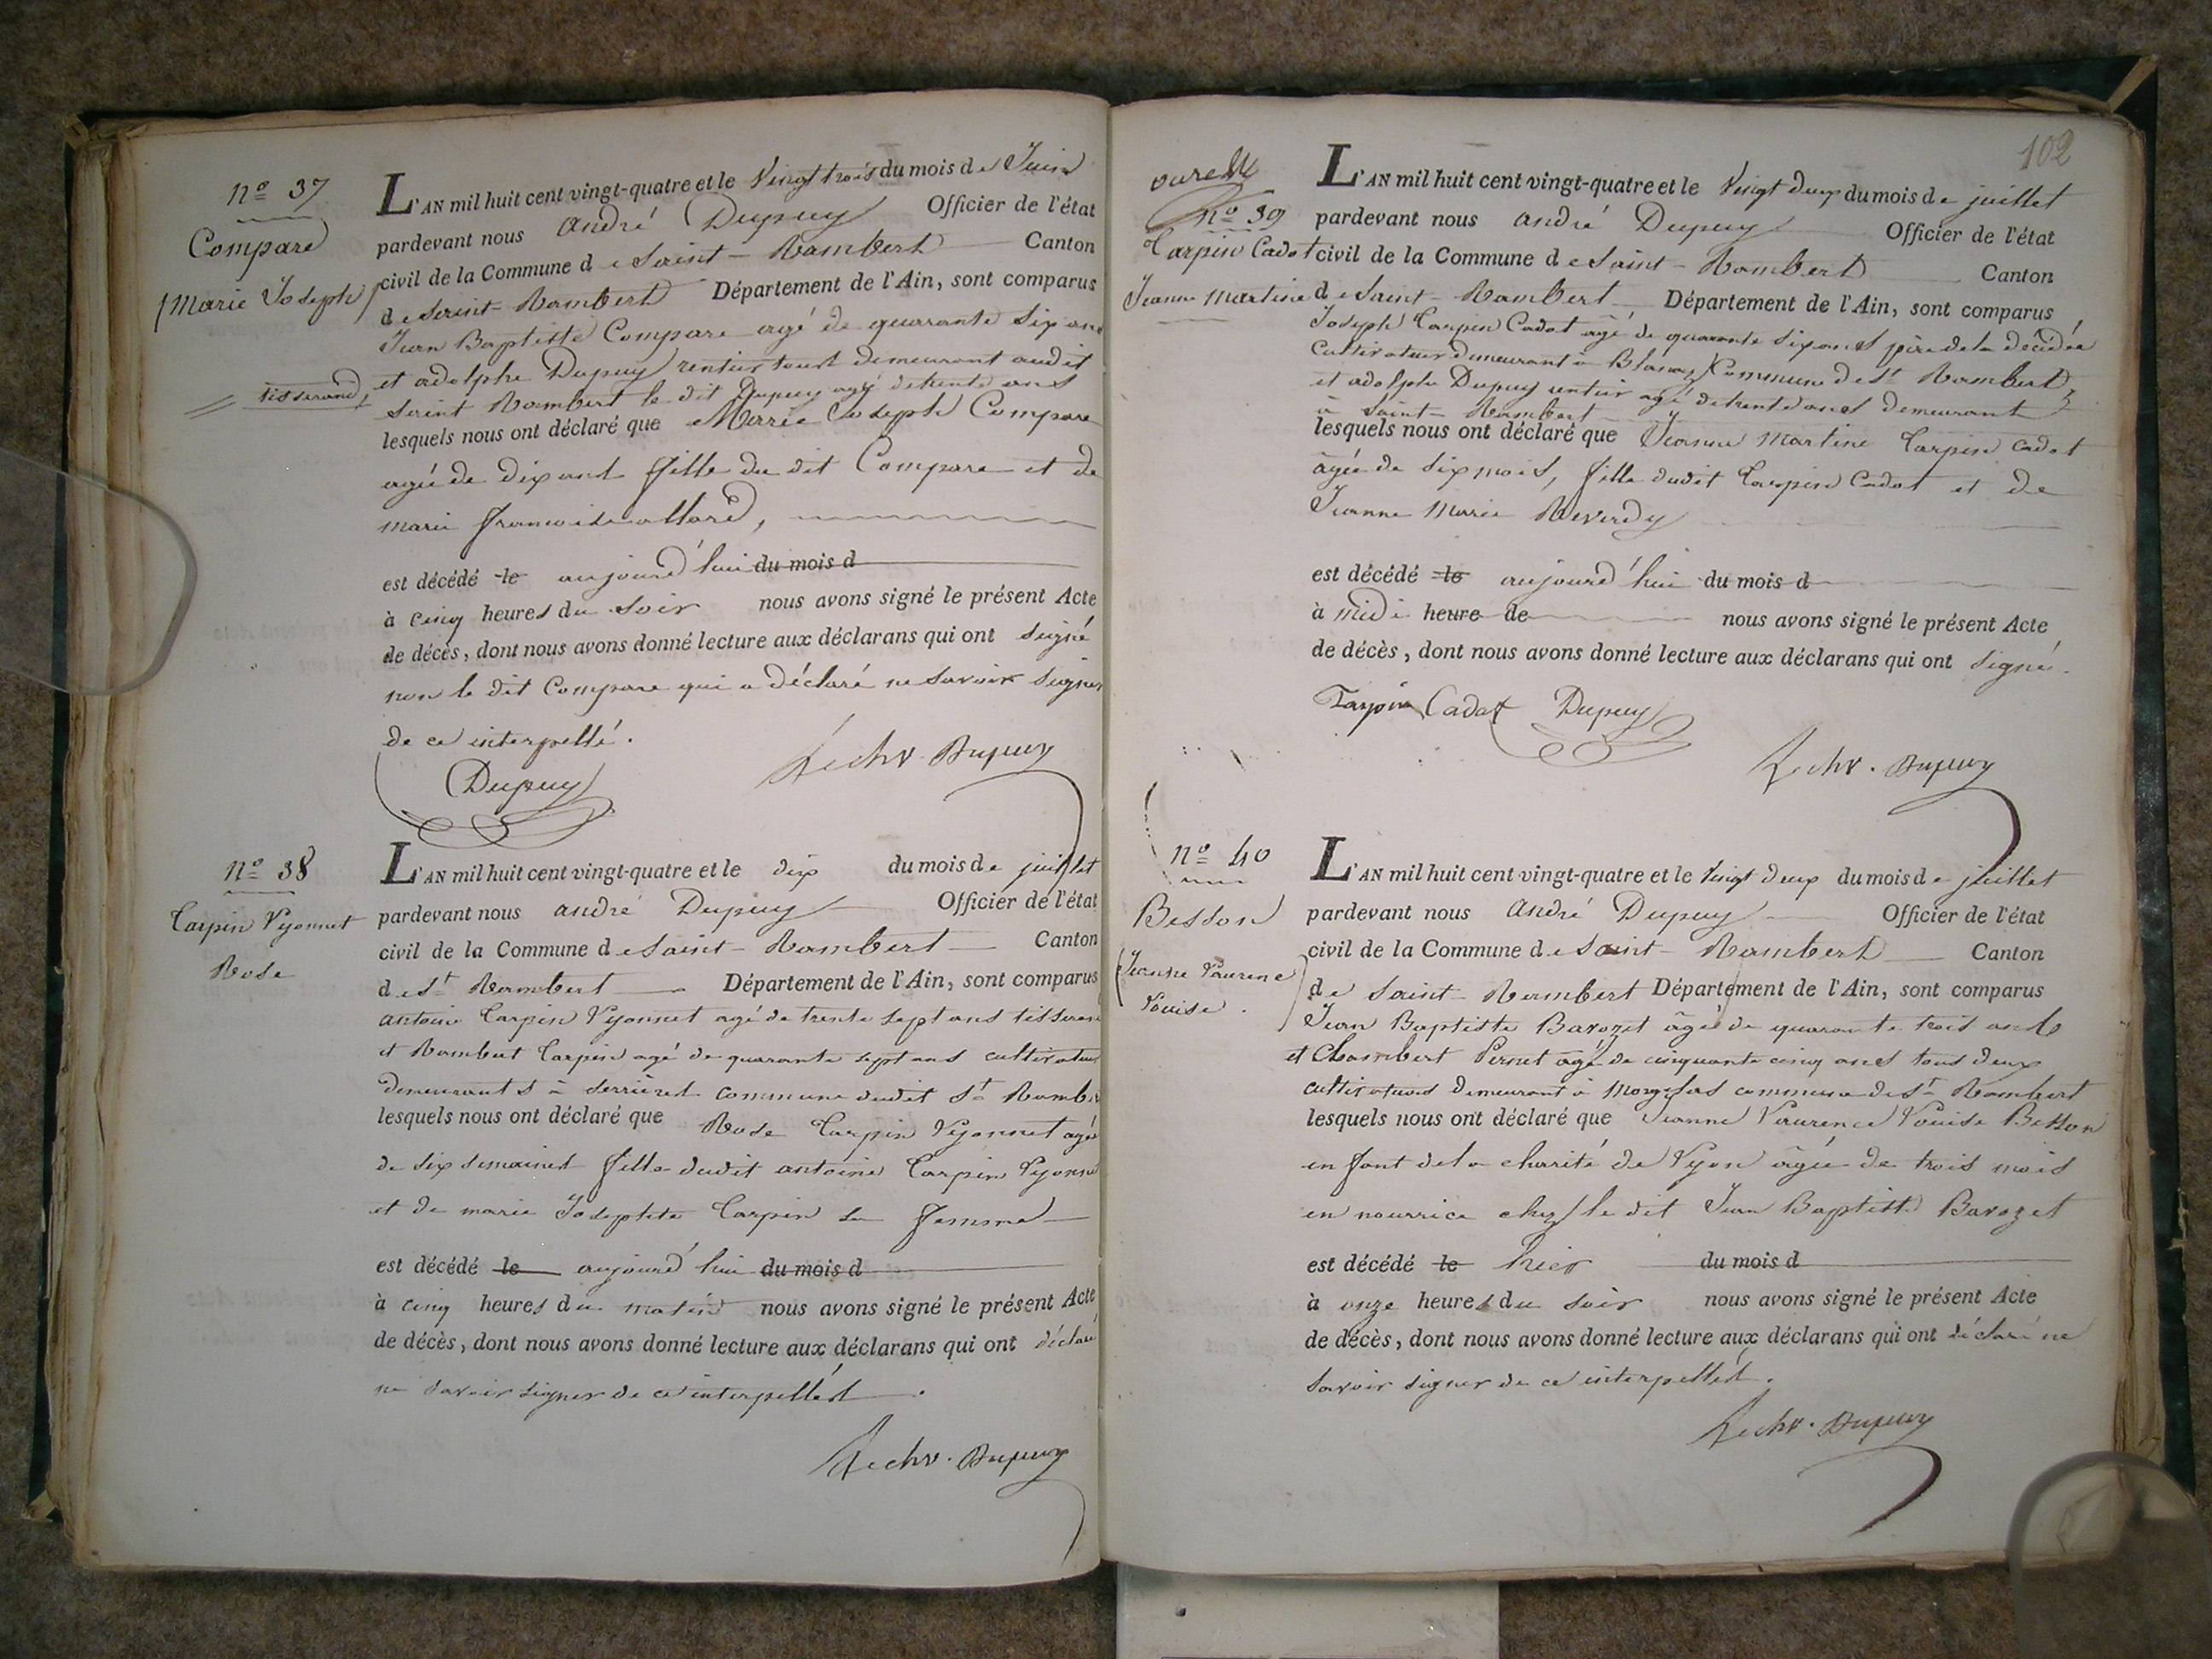 n.o 37
Compare
(Marie Joseph)
tisserand,
L'AN mil huit cent vingt-quatre et le Vingt trois du mois de Juin
pardevant nous André Dupuy Officier de l'état
civil de la Commune de Saint-Rambert Canton
de Saint-Rambert Département de l'Ain, sont comparus
Jean Baptiste Compare agé de quarante six ans
et adolphe Dupuy rentier tous demeurant audit
Saint Rambert le dit Dupuy agé de trente ans
lesquels nous ont déclaré que Marie Joseph Compare
agée de dix ans fille du dit Compare et de
marie francoise allard,
est décédé le aujourd'hui du mois d
à cinq heures du soir nous avons signé le présent Acte
de décès, dont nous avons donné lecture aux déclarans qui ont signé
non le dit Compare qui a déclaré ne savoir signer
de ce interpellé.
Dupuy
Dupuy
n.o 38
Tarpin Lyonnet
Rose
L'AN mil huit cent vingt-quatre et le dix du mois de juillet
pardevant nous andré Dupuy Officier de l'état
civil de la Commune de Saint-Rambert Canton
de St Rambert Département de l'Ain, sont comparus
antoine Tarpin Lyonnet agé de trente sept ans tisseran
et Rambert Tarpin agé de quarante sept ans cultivateur
demeurants à Serrières commune dudit St Rambert
lesquels nous ont déclaré que Rose Tarpin Lyonnet agée
de six semaines fille dudit antoine Tarpin Lyonne
et de marie Josephte Tarpin sa femme
est décédé le aujourd'hui du mois d
à cinq heures du matin nous avons signé le présent Acte
de décès, dont nous avons donné lecture aux déclarans qui ont déclaré
ne savoir signer de ce interpellés.
Dupuy
102
n.o 39
Tarpin Cadot
Jeanne Martine
L'AN mil huit cent vingt-quatre et le Vingt deux du mois de juillet
pardevant nous andré Dupuy Officier de l'état
civil de la Commune de Saint-Rambert Canton
de Saint-Rambert Département de l'Ain, sont comparus
Joseph Tarpin Cadot agé de quarante six ans père de la décédée
Cultivateur demeurant à Blanaz Commune de St Rambert,
et adolphe Dupuy rentier agé de trente ans demeurant
à Saint-Rambert
lesquels nous ont déclaré que Jeanne Martine Tarpin Cadot
âgée de six mois, fille dudit Tarpin Cadot et de
Jeanne Marie Reverdy
est décédé le aujourd'hui du mois d
à midi heure de nous avons signé le présent Acte
de décès, dont nous avons donné lecture aux déclarans qui ont signé.
Tarpin Cadot Dupuy
Dupuy
n.o 40
Besson
(Jeanne Laurence
Louise.)
L'AN mil huit cent vingt-quatre et le Vingt deux du mois de juillet
pardevant nous André Dupuy Officier de l'état
civil de la Commune de Saint-Rambert Canton
de Saint-Rambert Département de l'Ain, sont comparus
Jean Baptiste Barozet âgé de quarante trois ans
et Chambert Pernet âgé de cinquante cinq ans tous deux
cultivateurs demeurant à Morgelas commune de St Rambert
lesquels nous ont déclaré que Jeanne Laurence Louise Besson
enfant de la charité de Lyon âgée de trois mois
en nourrice chez le dit Jean Baptiste Barozet
est décédé le hier du mois d
à onze heures du soir nous avons signé le présent Acte
de décès, dont nous avons donné lecture aux déclarans qui ont déclaré ne
savoir signer de ce interpellés.
Dupuy